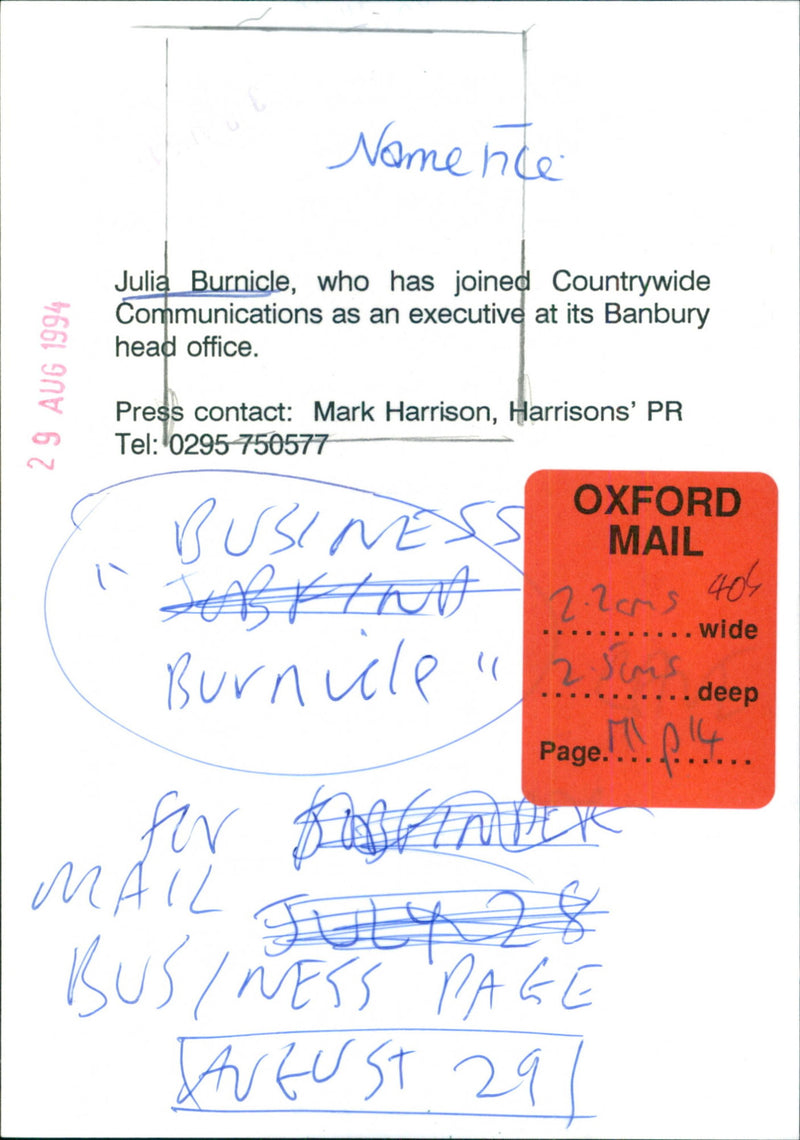 Name
Julia Burnicle, who has joined Countrywide
Communications as an executive at its Banbury
head office.
Press contact: Mark Harrison, Harrisons' PR
Tel: 0295 750577
29 AUG 1994
" BUSINESS
JOBFIND
Burnicle "
OXFORD
MAIL
2.2cms
wide
2.5cms
deep
Page p14
for JOBFINDER
MAIL JULY 28
BUSINESS PAGE
AUGUST 29